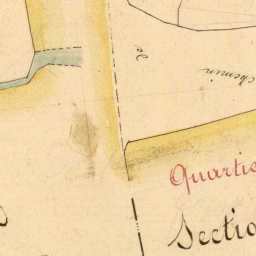 chemin
de
Quartie
Sectio